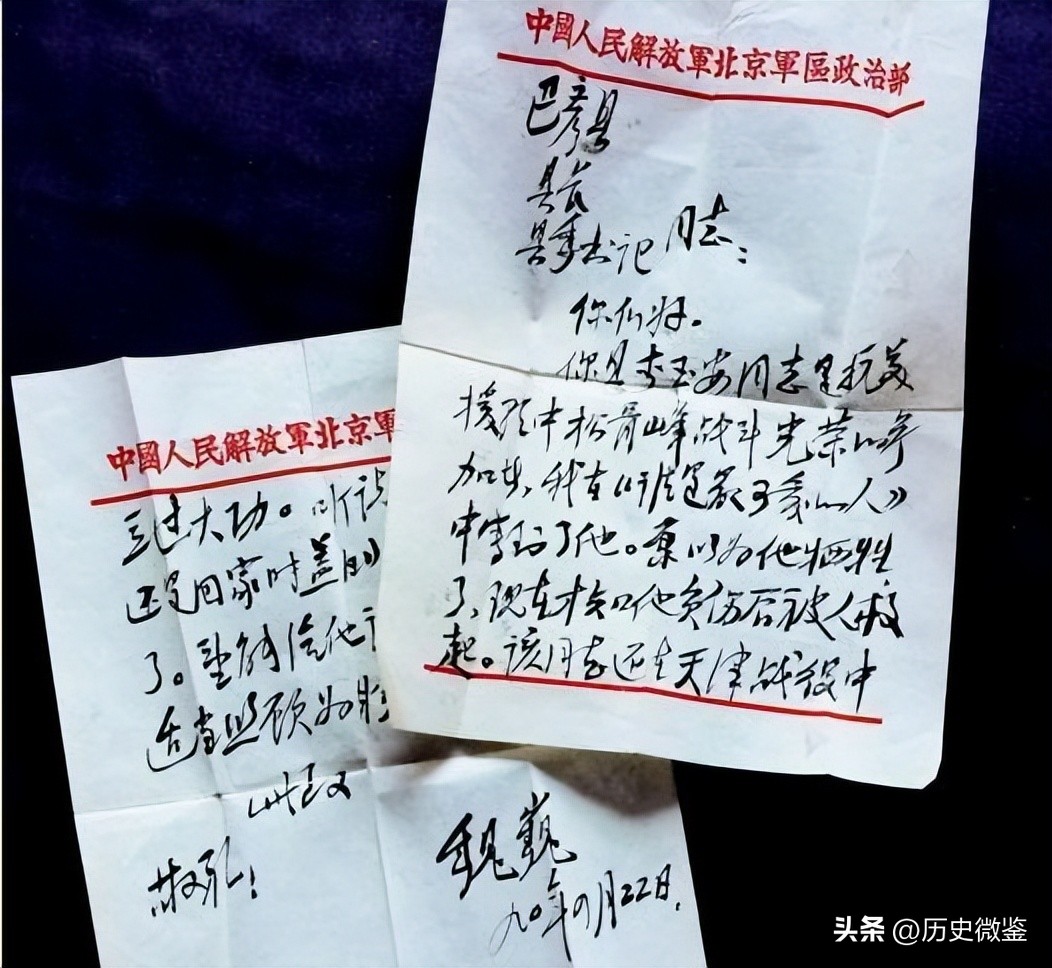 中國人民解放軍北京軍區政治部
巴彦县
县长
县委书记 同志：
你们好。
你县李玉安同志是抗美
援朝中松骨峰战斗光荣的参
加者，我在《谁是最可爱的人》
中写到了他。原以为他牺牲
了，现在才知他负伤后被人救
起。该同志还在天津战役中
中國人民解放軍北京軍
立过大功。听说
还是回家时盖的
了。望能给他
适当照顾为盼
此致
敬礼！
魏巍
九〇年 月22日.
头条 @历史微鉴